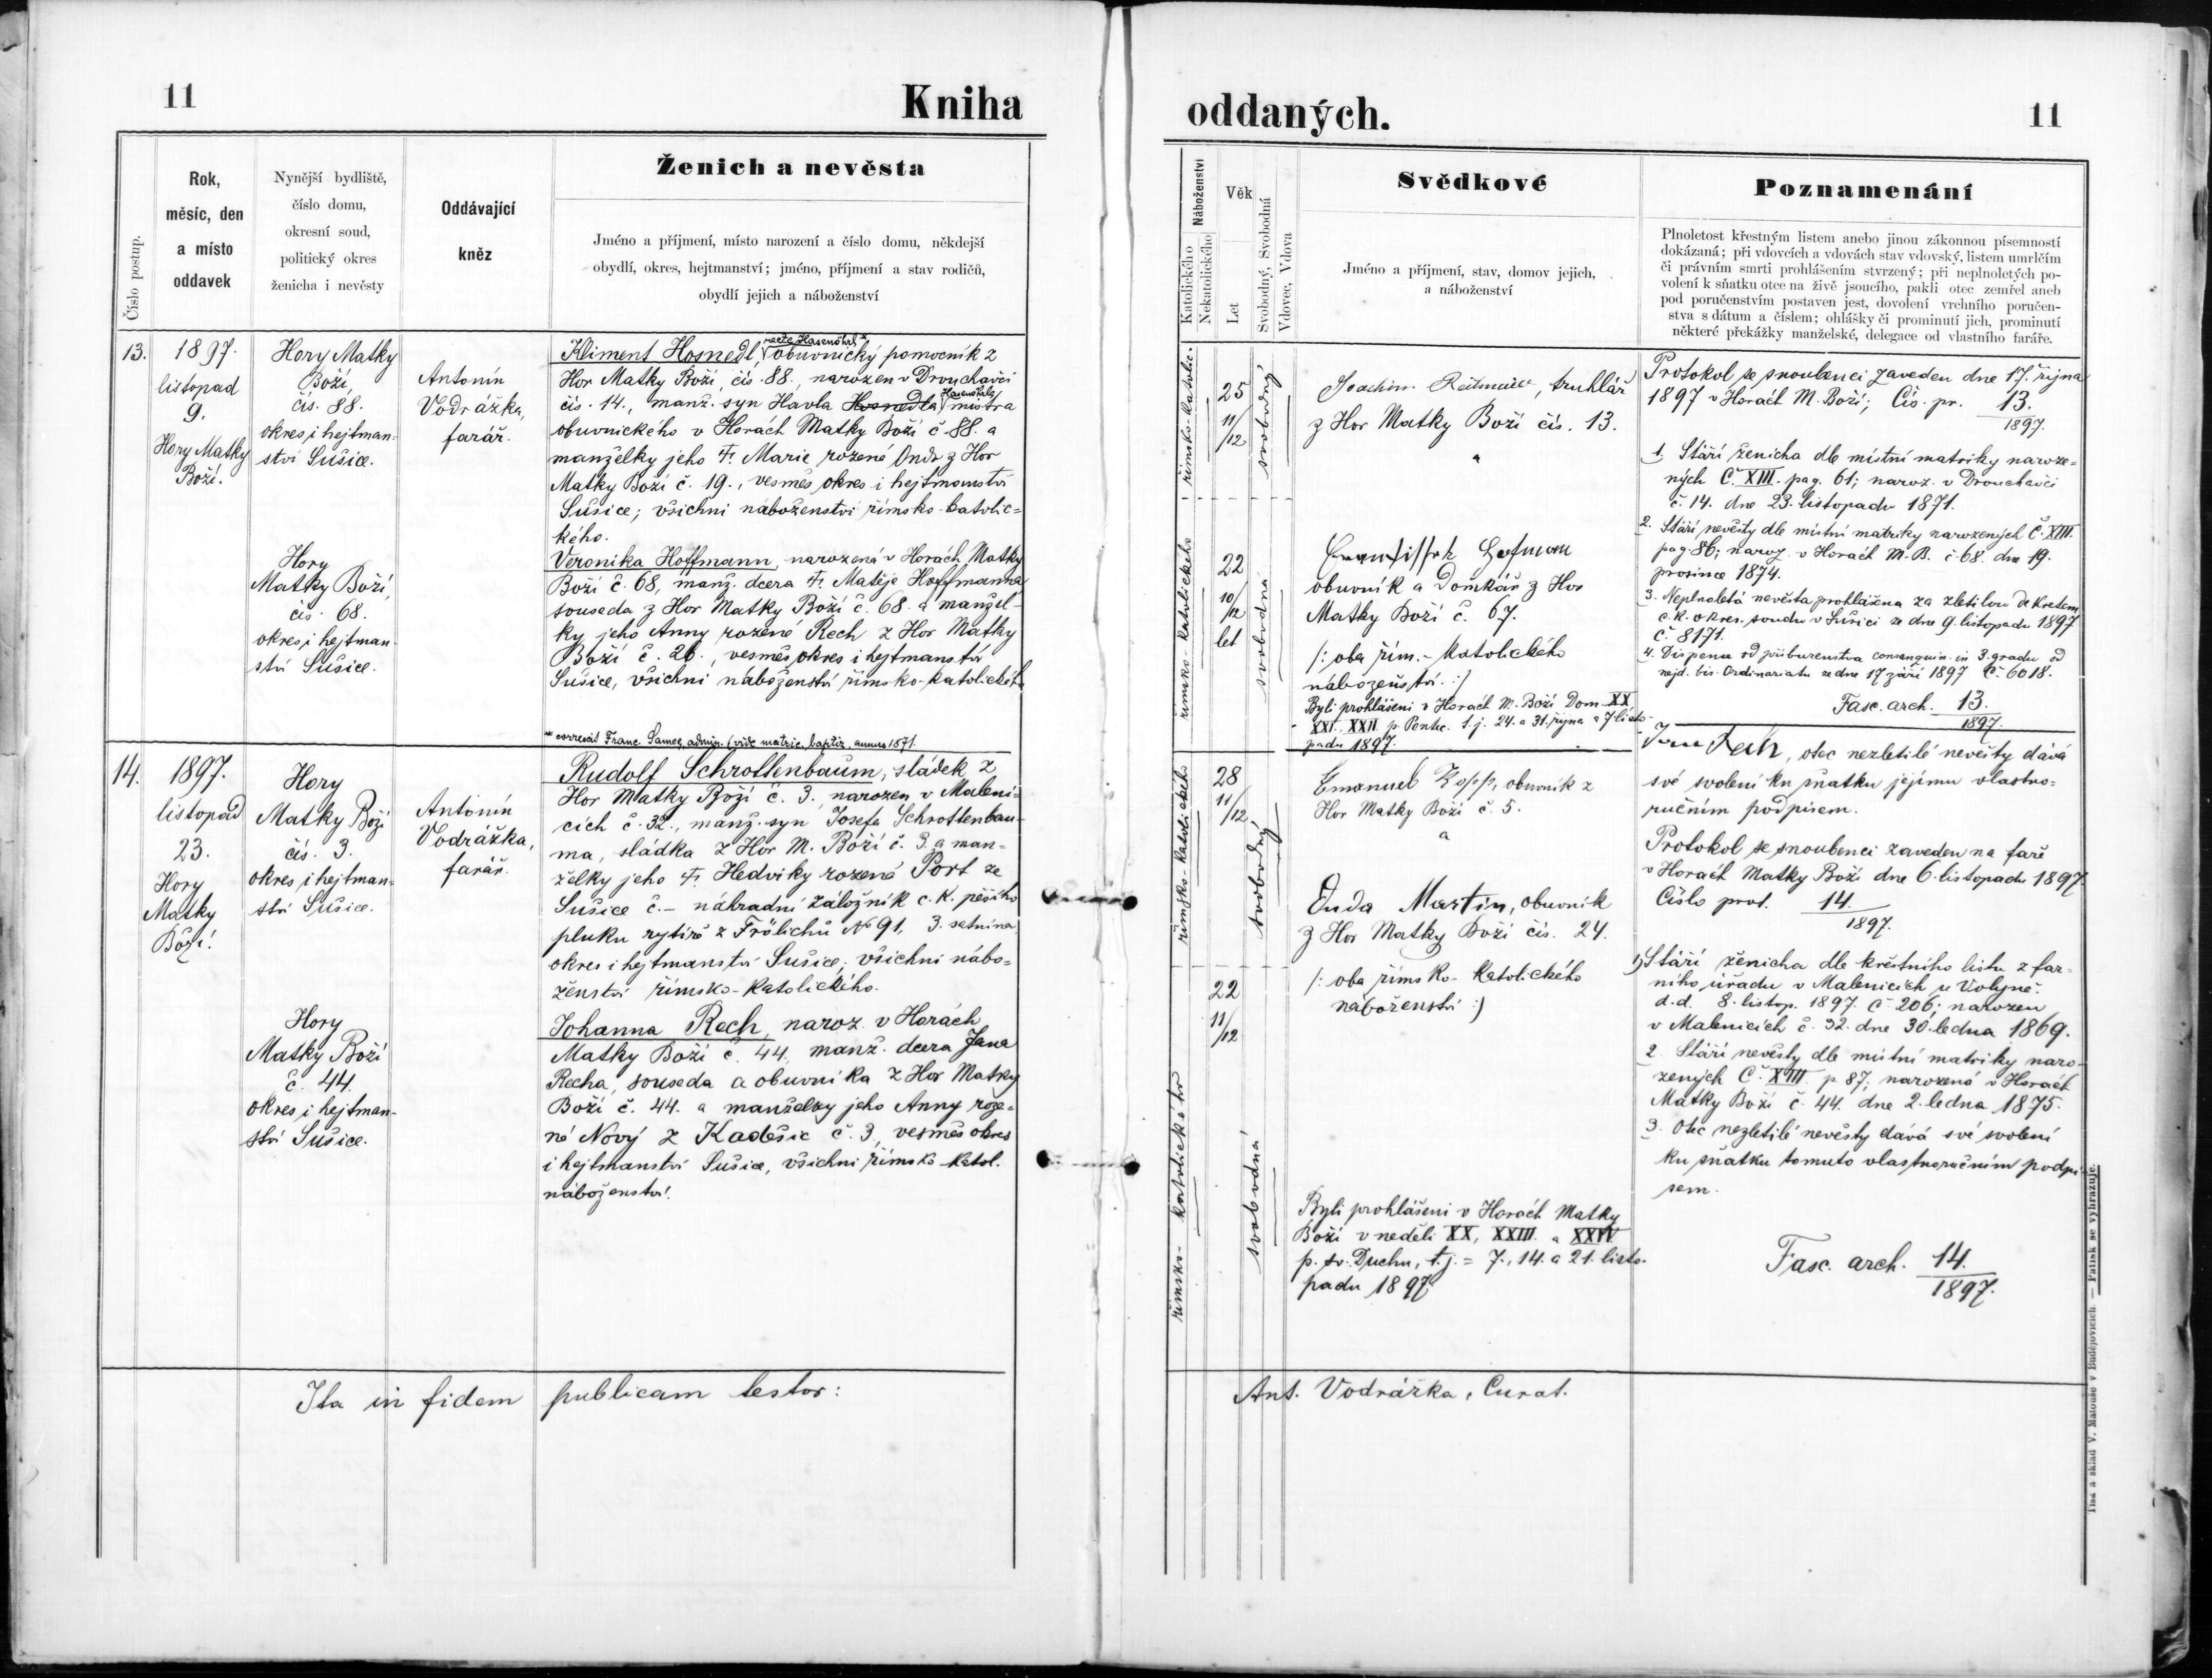 11
Kniha
Číslo postup.
Rok,
měsíc, den
a místo
oddavek
Nynější bydliště,
číslo domu,
okresní soud,
politický okres
ženicha i nevěsty
Oddávající
kněz
Ženich a nevěsta
Jméno a příjmení, místo narození a číslo domu, někdejší
obydlí, okres, hejtmanství; jméno, příjmení a stav rodičů,
obydlí jejich a náboženství
13.
1897.
listopad
9.
Hory Matky
Boží.
Hory Matky
Boží,
čís. 88.
okres i hejtman-
ství Sušice.
Antonín
Vodrážka,
farář.
recte Hasenöhrl *
Kliment Hosnedl, obuvnický pomocník z
Hor Matky Boží, čís. 88., narozen v Drouhavči
Hasenöhrla
čís. 14., manž. syn Havla Hosnedla mistra
obuvnického v Horách Matky Boží č. 88. a
manželky jeho Marie rozené Onda z Hor
Matky Boží č. 19., vesměs okres i hejtmanství
Sušice; všichni náboženství římsko-katolic=
kého.
Hory
Matky Boží,
čís. 68.
okres i hejtman-
ství Sušice.
Veronika Hoffmann, narozená v Horách Matky
Boží č. 68, manž. dcera Matěje Hoffmanna
souseda z Hor Matky Boží č. 68. a manžel-
ky jeho Anny rozené Rech z Hor Matky
Boží č. 26., vesměs okres i hejtmanství
Sušice, všichni náboženství římsko-katolického
* correxit Franc. Samec, admin. (vide matric. baptiz. annus 1871.
14.
1897.
listopad
23.
Hory
Matky
Boží.
Hory
Matky Boží
čís. 3.
okres i hejtman-
ství Sušice.
Antonín
Vodrážka,
farář.
Rudolf Schrottenbaum, sládek z
Hor Matky Boží č. 3., narozen v Maleni=
cích č. 32., manž. syn Josefa Schrottenbau-
ma, sládka z Hor M. Boží č. 3. a man-
želky jeho Hedviky rozené Port ze
Sušice č. – náhradní záložník c. k. pěšího
pluku rytíře z Frölichů № 91, 3. setnina
okres i hejtmanství Sušice; všichni nábo=
ženství římsko-katolického.
Hory
Matky Boží
č. 44.
okres i hejtman-
ství Sušice.
Johanna Rech, naroz. v Horách
Matky Boží č. 44. manž. dcera Jana
Recha, souseda a obuvníka z Hor Matky
Boží č. 44. a manželky jeho Anny roze-
né Nový z Kadešic č. 3, vesměs okres
i hejtmanství Sušice, všichni římsko-katol.
náboženství.
Ita in fidem publicam testor:
oddaných.
11
Náboženství
Katolického
Nekatolického
Věk
Let
Svobodný, Svobodná
Vdovec, Vdova
Svědkové
Jméno a příjmení, stav, domov jejich,
a náboženství
Poznamenání
Plnoletost křestným listem anebo jinou zákonnou písemností
dokázaná; při vdovcích a vdovách stav vdovský, listem umrlčím
či právním smrti prohlášením stvrzený; při neplnoletých po-
volení k sňatku otce na živě jsoucího, pakli otec zemřel aneb
pod poručenstvím postaven jest, dovolení vrchního poručen-
stva s dátum a číslem; ohlášky či prominutí jich, prominutí
některé překážky manželské, delegace od vlastního faráře.
římsko-katolic-
25
11/12
svobodný
Joachim, truhlář
z Hor Matky Boží čís. 13.
a
římsko-katolického
22
10/12
let
svobodná
Hofmann
obuvník a domkář z Hor
Matky Boží č. 67.
/: oba řím.-katolického
náboženství. :/
Byli prohlášeni v Horách M. Boží Dom. XX,
XXI. XXII p. Pentec. t. j. 24. a 31. října a 7 listo-
padu 1897.
Protokol se snoubenci zaveden dne 17. října
1897 v Horách M. Boží; Čís. pr. 13.
1897.
1. Stáří ženicha dle místní matriky naroze=
ných Č. XIII. pag. 61; naroz. v Drouhavči
č. 14. dne 23. listopadu 1871.
2. Stáří nevěsty dle místní matriky narozených Č. XIII.
pag. 86; naroz. v Horách M. B. č. 68. dne 19.
prosince 1874.
3. Neplnoletá nevěsta prohlášena za zletilou dekretem
c. k. okres. soudu v Sušici ze dne 9. listopadu 1897
č. 8171.
4. Dispens od příbuzenstva consanguin. in 3. gradu od
nejd. bis. Ordinariatu ze dne 17 září 1897 č. 6018.
Fasc. arch. 13.
1897.
římsko-katolického
28
11/12
svobodný
Emanuel Zopp, obuvník z
Hor Matky Boží č. 5.
a
Onda Martin, obuvník
z Hor Matky Boží čís. 24.
/: oba římsko-katolického
náboženství :/
římsko-katolického
22
11/12
svobodná
Byli prohlášeni v Horách Matky
Boží v neděli XX, XXIII. a XXIV
p. sv. Duchu, t. j. = 7., 14. a 21. listo-
padu 1897
Rech, otec nezletilé nevěsty dává
své svolení ku sňatku jejímu vlastno=
ručním podpisem.
Protokol se snoubenci zaveden na faře
v Horách Matky Boží dne 6. listopadu 1897.
Číslo prot. 14.
1897.
1) Stáří ženicha dle křestního listu z far-
ního úřadu v Malenicích u Volyně.
d. d. 8. listop. 1897. č. 206; narozen
v Malenicích č. 32. dne 30. ledna 1869.
2. Stáří nevěsty dle místní matriky naro-
zených Č. XIII. p. 87; narozená v Horách
Matky Boží č. 44. dne 2. ledna 1875.
3. Otec nezletilé nevěsty dává své svolení
ku sňatku tomuto vlastnoručním podpi-
sem.
Fasc. arch. 14.
1897.
Ant. Vodrážka, Curat.
Tisk a sklad V. Matouše v Budějovicích. — Patisk se vyhrazuje.